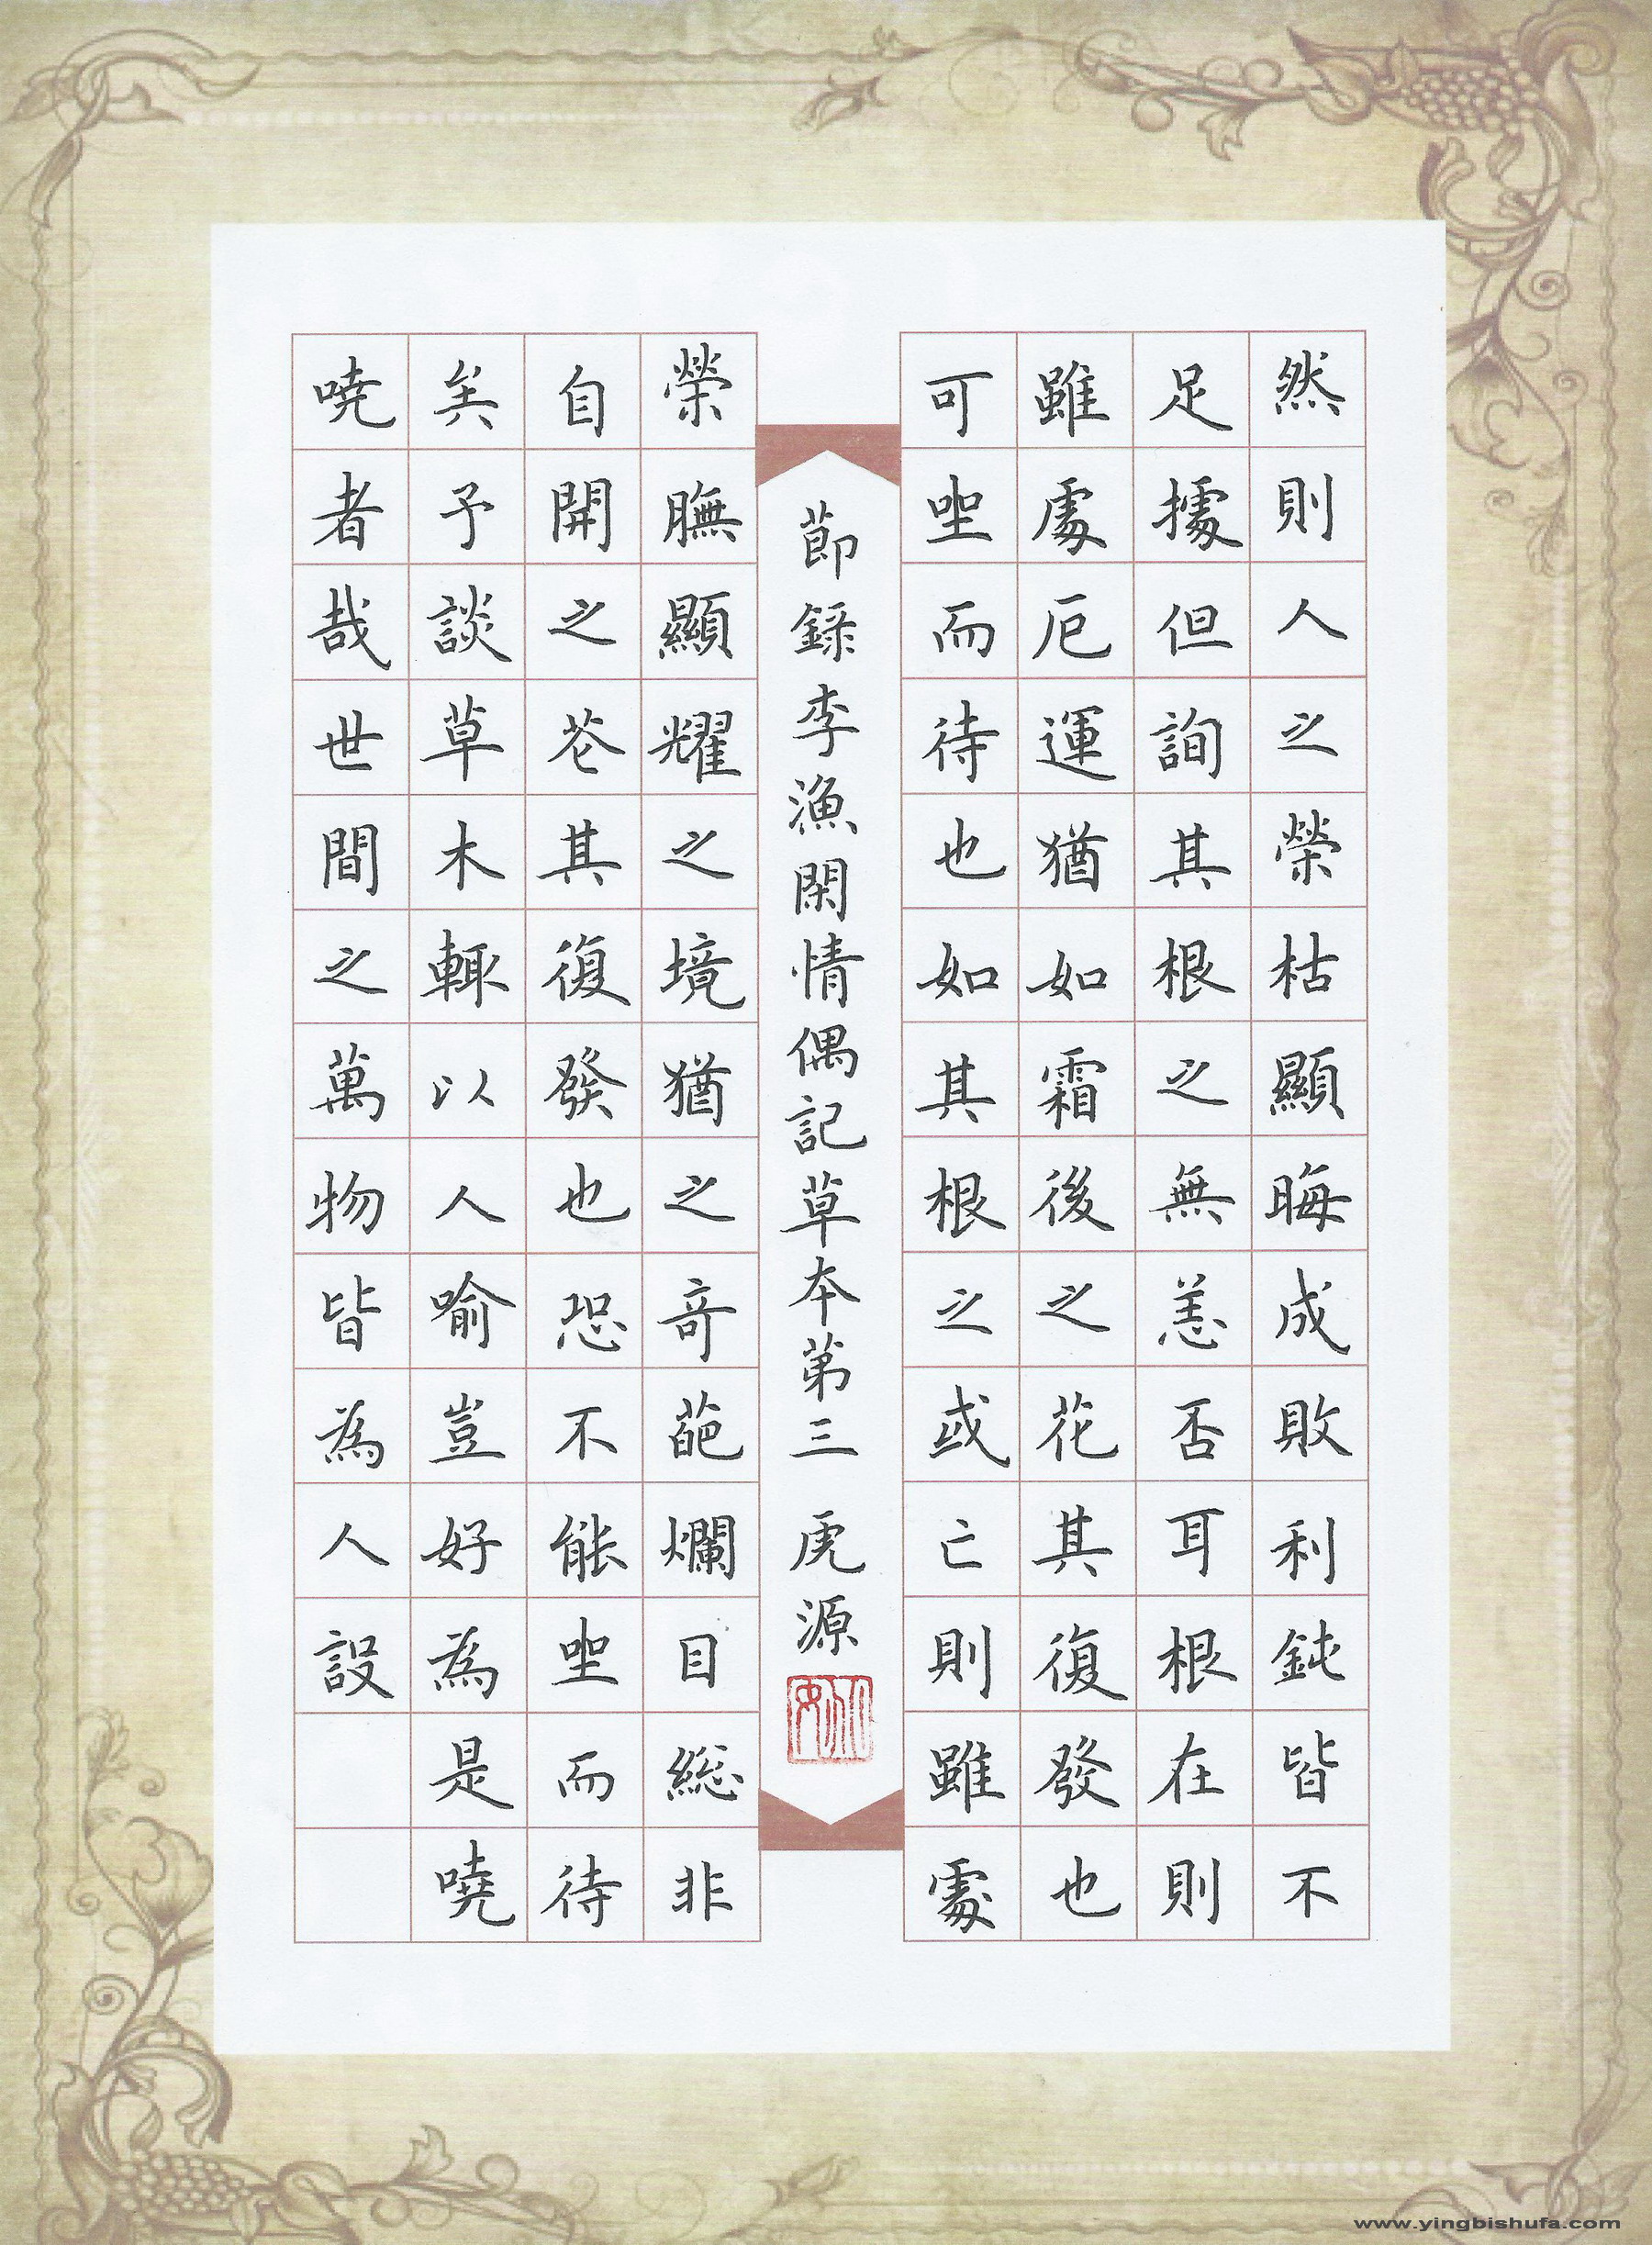 然則人之榮枯顯晦成敗利鈍皆不
足據但詢其根之無恙否耳根在則
雖處厄運猶如霜後之花其復發也
可坐而待也如其根之或亡則雖處
節錄李漁閑情偶記草本第三 虎源
榮膴顯耀之境猶之奇葩爛目總非
自開之花其復發也恐不能坐而待
矣予談草木輒以人喻豈好為是哓
哓者哉世間之萬物皆為人設
www.yingbishufa.com